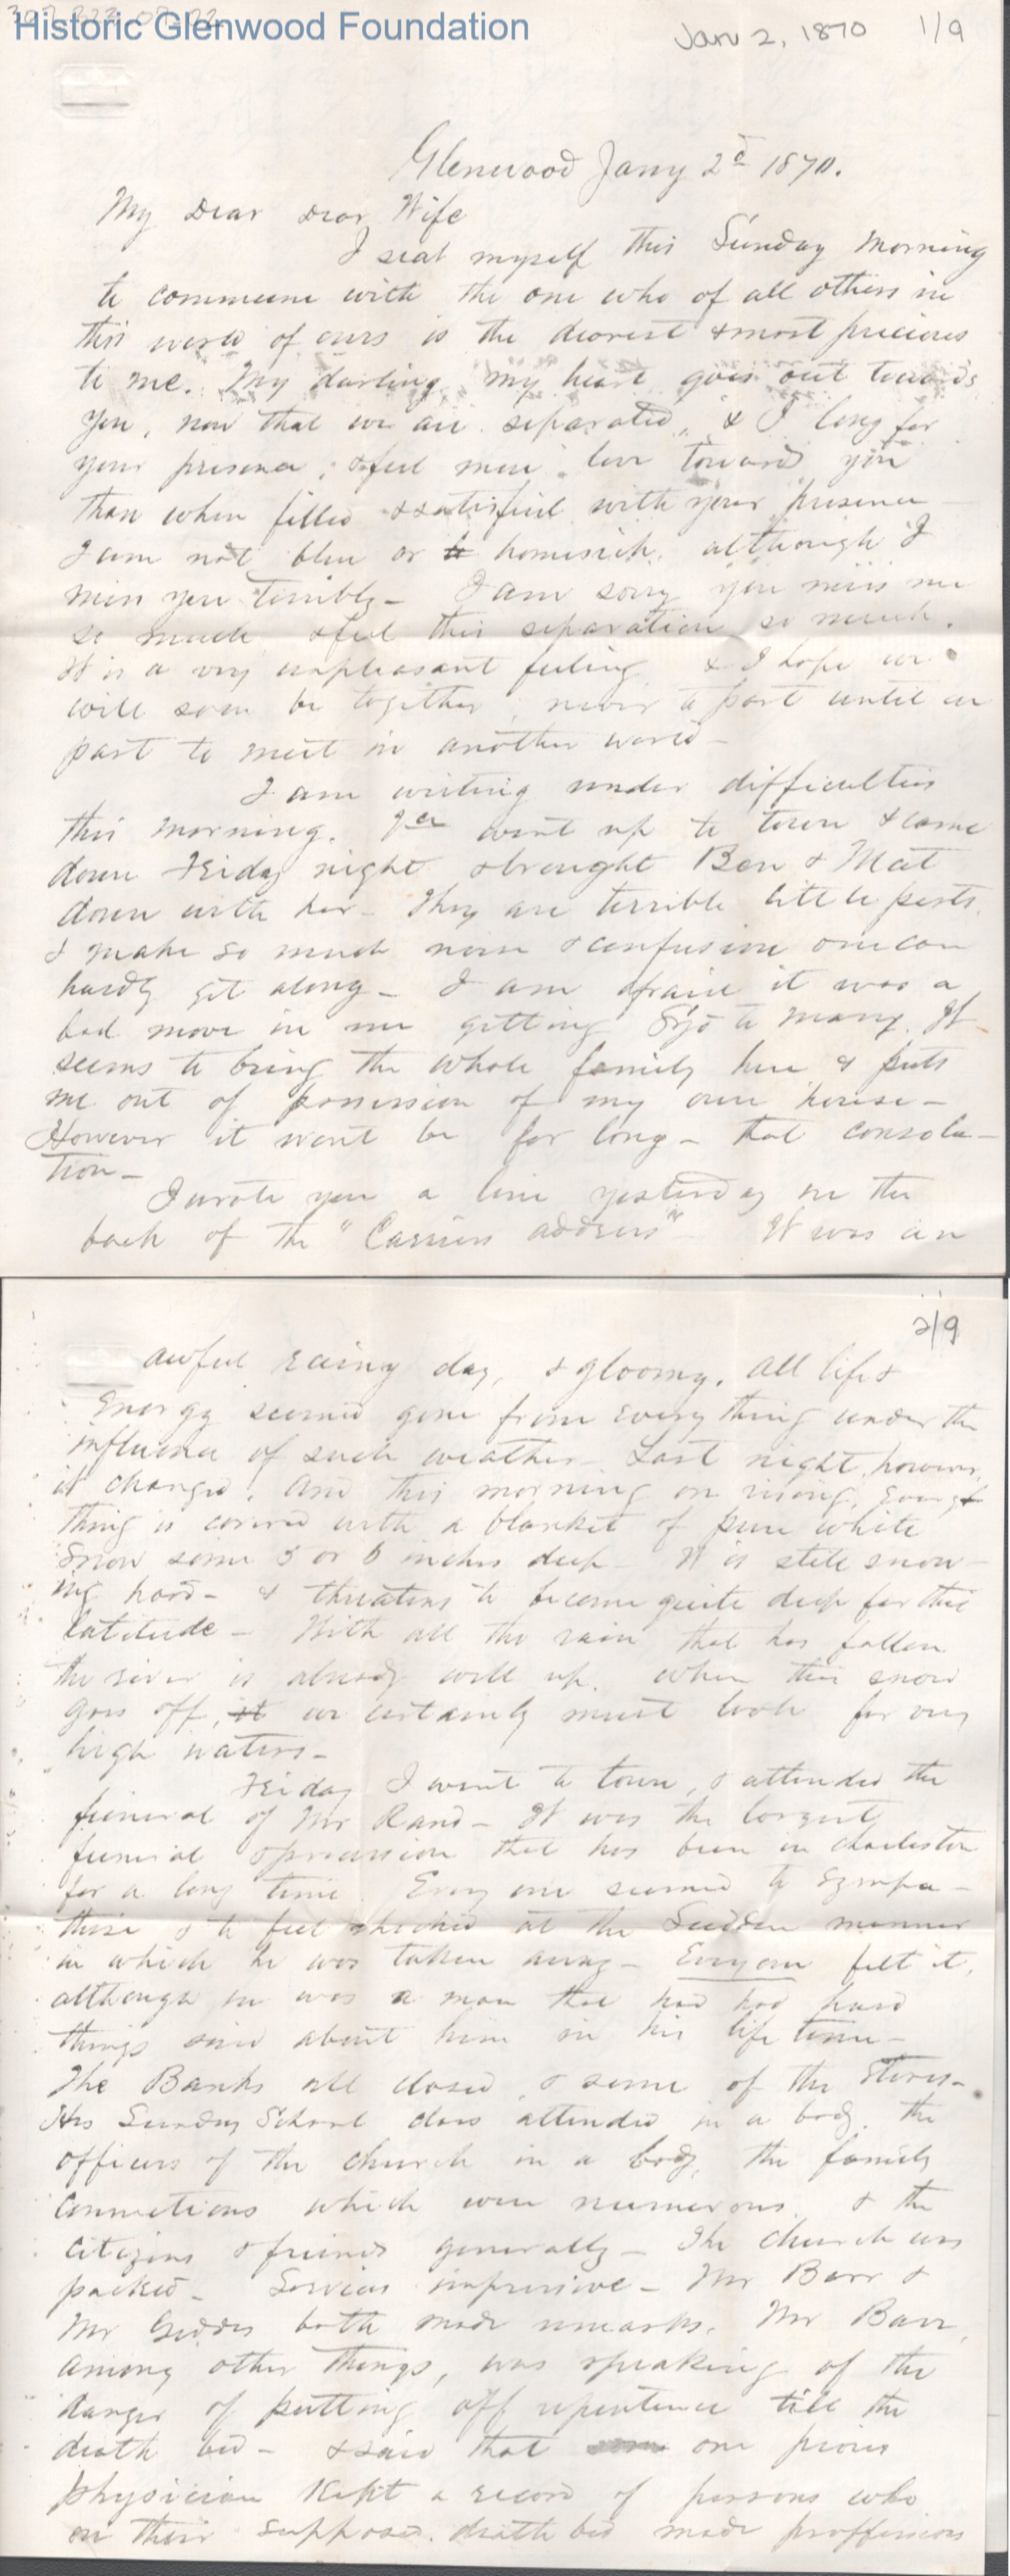 Historic Glenwood Foundation
Jan 2, 1870 1/9
Glenwood Jany 2d 1870.
My Dear Dear Wife
I seat myself this Sunday Morning
to commune with the one who of all others in
this world of ours is the dearest & most precious
to me. My darling my heart goes out towards
you, now that we are separated, & I long for
your presence, & feel more love toward you
than when filled & satisfied with your presence
I am not blue or homesick, although I
miss you terribly - I am sorry you miss me
so much & feel this separation so much.
It is a very unpleasant feeling & I hope we
will soon be together, never to part until we
part to meet in another world -
I am writing under difficulties
this morning. went up to town & came
down Friday night & brought Ben & Mat
down with her - They are terrible little pests.
& make so much noise & confusion one can
hardly get along - I am afraid it was a
bad move in me getting to marry. It
seems to bring the whole family here & puts
me out of possession of my own house -
However it wont be for long - that consola-
tion -
I wrote you a line yesterday on the
back of the "Carriers address" It was an
2/9
awful rainy day, & gloomy. All life &
Energy seemed gone from every thing under the
influence of such weather - Last night, however,
it changed. And this morning on rising, every
thing is covered with a blanket of pure white
Snow some 5 or 6 inches deep It is still snow-
ing hard - & threatens to become quite deep for this
latitude - With all the rain that has fallen
the river is already well up. When this snow
goes off, it we certainly must look for very
high waters -
Friday I went to town, & attended the
funeral of Mr Rand - It was the largest
funeral & procession that has been in Charleston
for a long time. Every one seemed to sympa-
thise & to feel shocked at the Sudden manner
in which he was taken away - Everyone felt it,
although he was a man that had had hard
things said about him in his life time -
The Banks all closed, & some of the Stores -
His Sunday School class attended in a body. the
officers of the church in a body, the family
connections which were numerous, & the
citizens & friends generally - The church was
packed - Services impressive - Mr Barr &
Mr Geddes both made remarks. Mr Barr,
among other things, was speaking of the
danger of putting off repentence till the
death bed - & said that one pious
physician Kept a record of persons who
on their supposed death bed made proffessions